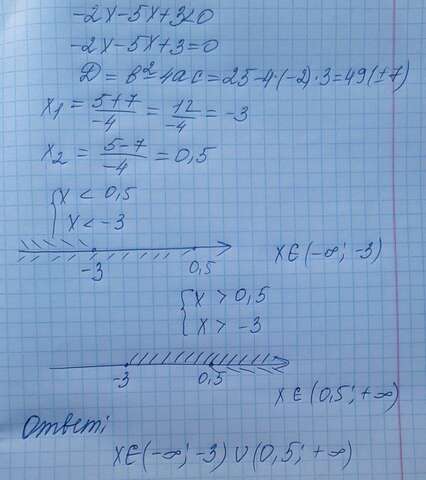 -2x-5x+3<0
-2x-5x+3=0
D=b²-4ac=25-4·(-2)·3=49(±7)
x₁=5+7/-4=12/-4=-3
x₂=5-7/-4=0,5
{x<0,5
x<-3
-3 0,5 x∈(-∞; -3)
{x>0,5
x>-3
-3 0,5 x∈(0,5; +∞)
Ответ:
x∈(-∞; -3)∪(0,5; +∞)